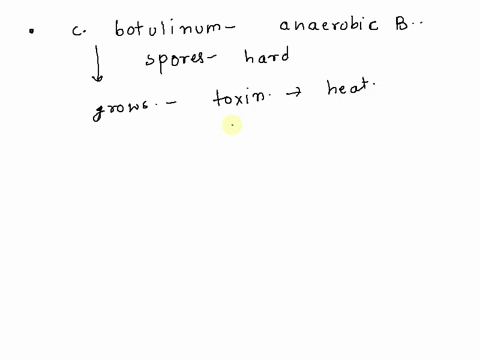 • c. botulinum- anaerobic B..
spores- hard
grows.- toxin. → heat.